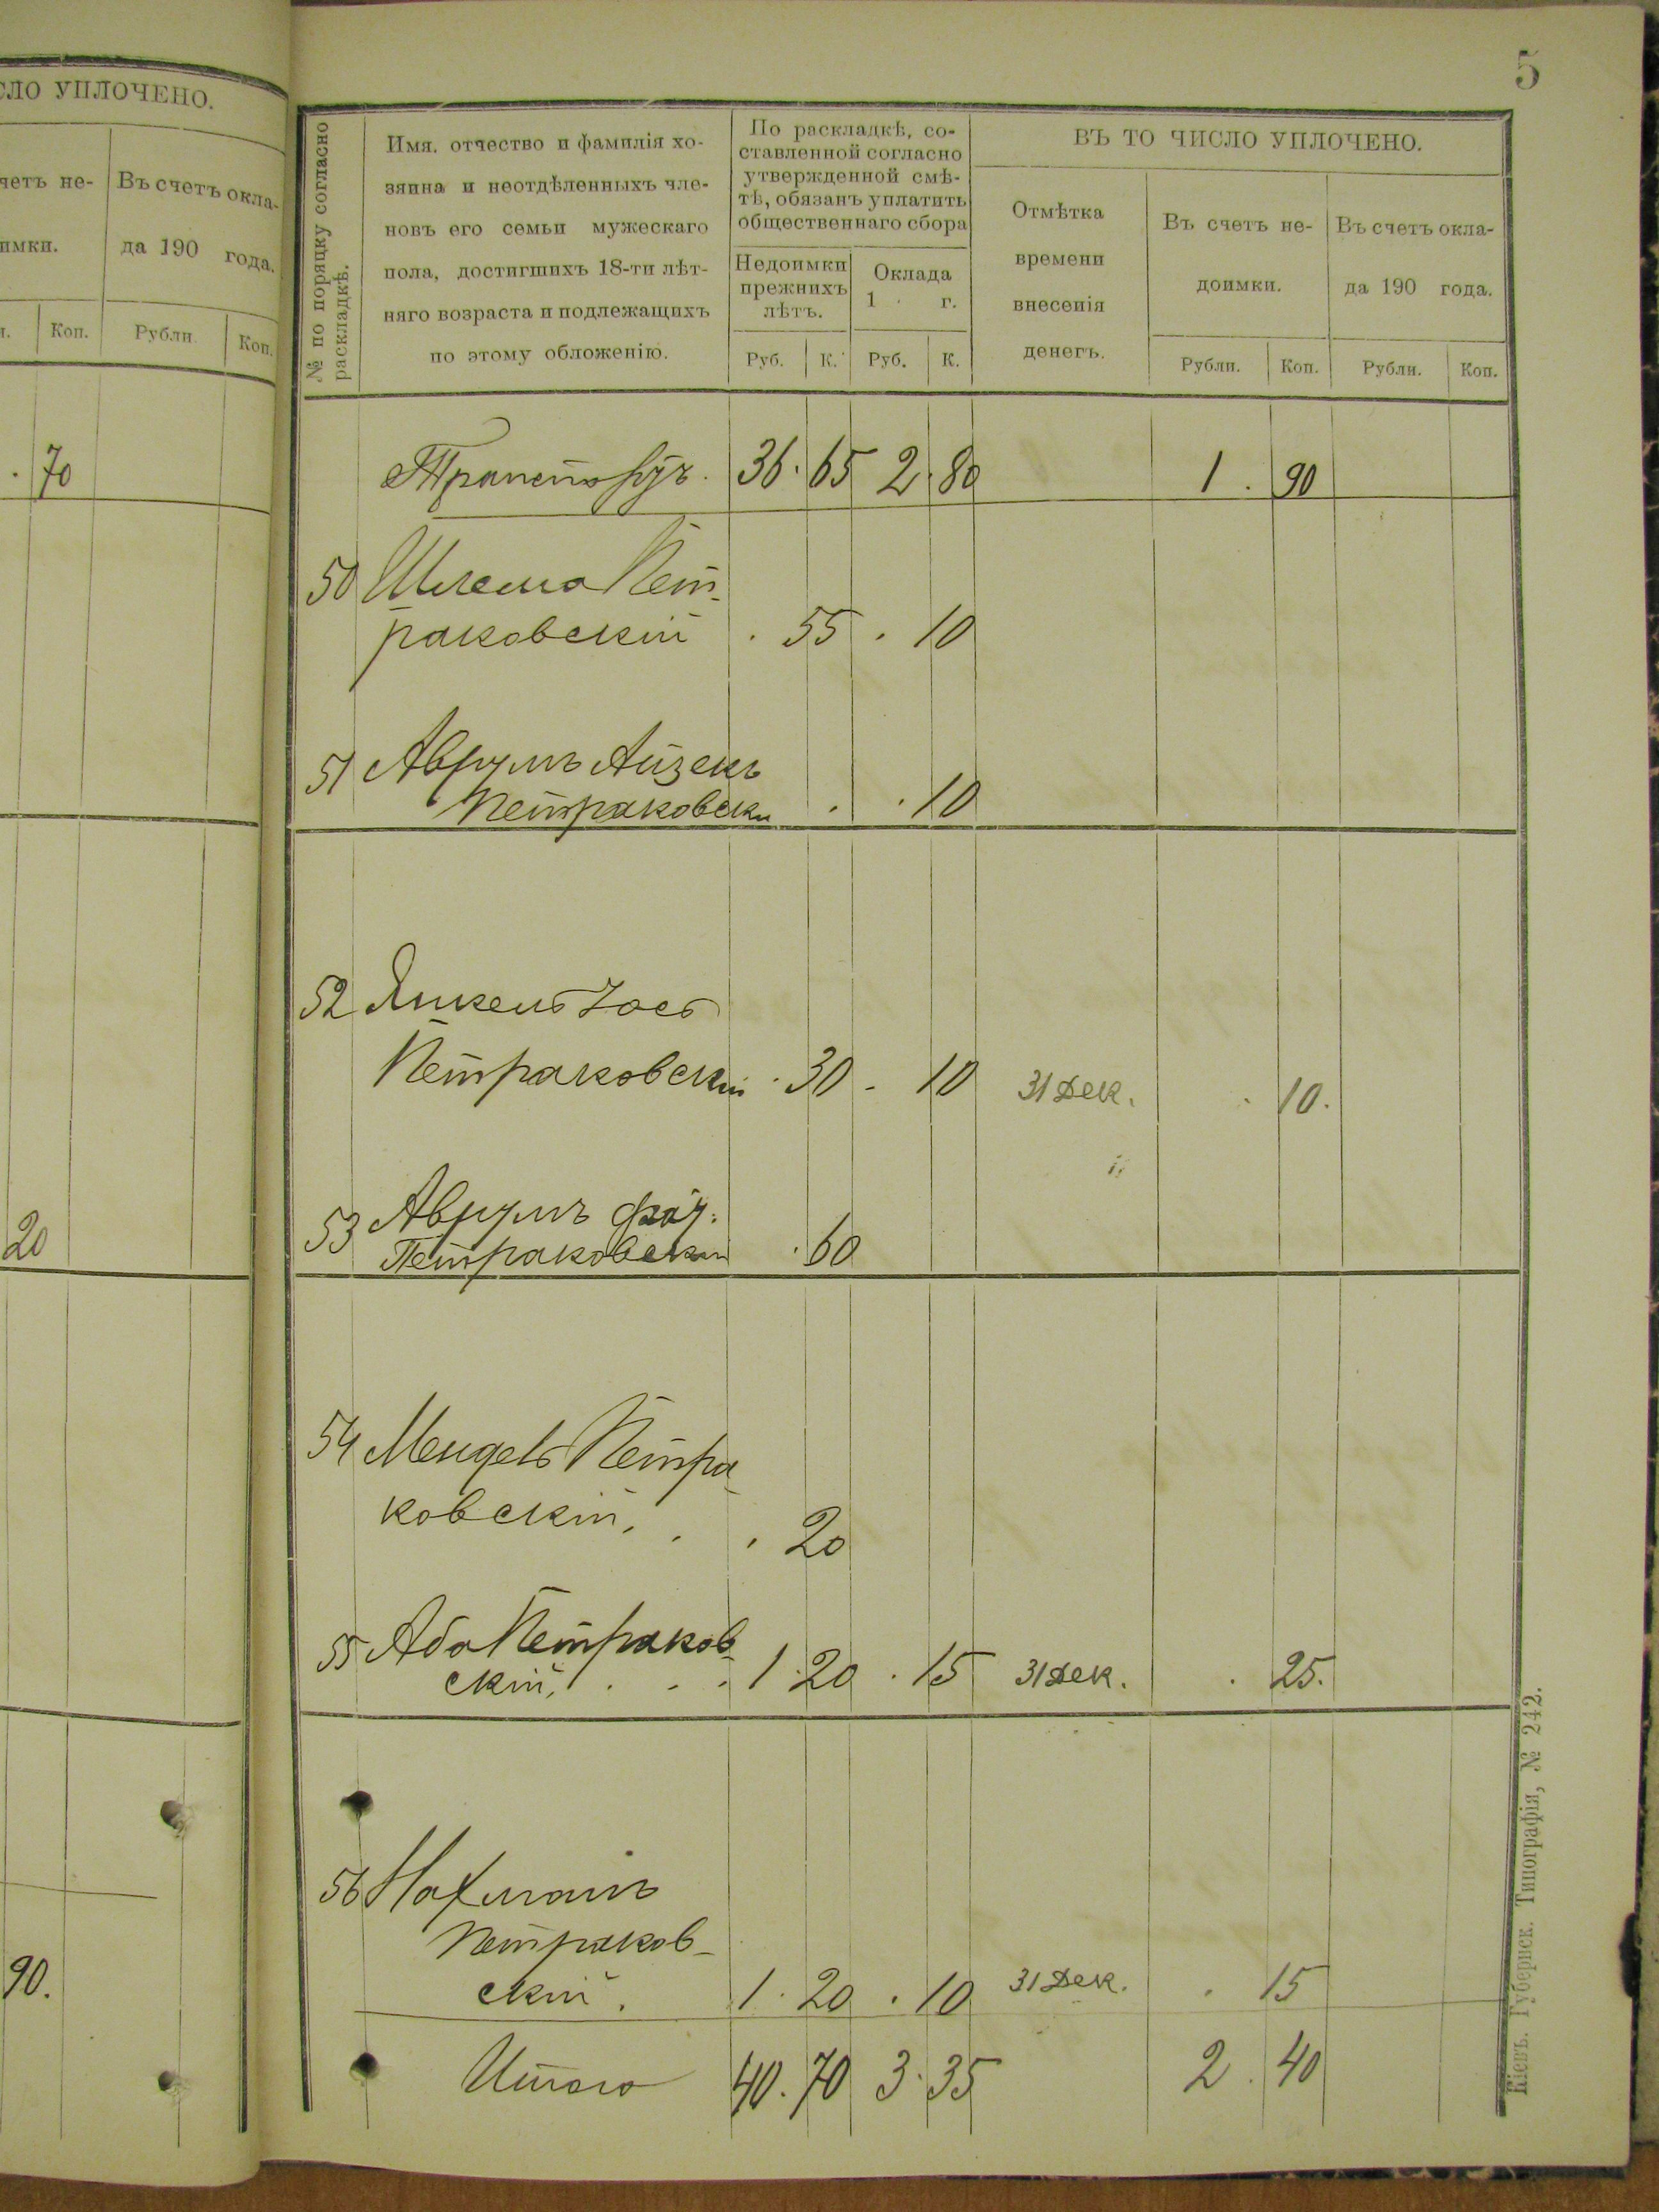 СЛО УПЛОЧЕНО.
четъ не-
Въ счетъ окла-
имки.
да 190 года.
Коп.
Рубли.
Коп.
. 70
20
90.
5
№ по поряцку согласно
раскладкѣ.
Имя, отчество и фамилія хо-
зяина и неотдѣленныхъ чле-
новъ его семьи мужескаго
пола, достигшихъ 18-ти лѣт-
няго возраста и подлежащихъ
по этому обложенію.
По раскладкѣ, со-
ставленной согласно
утвержденной смѣ-
тѣ, обязанъ уплатить
общественнаго сбора
Недоимки
прежнихъ
лѣтъ.
Оклада
1 г.
Руб. К. Руб. К.
ВЪ ТО ЧИСЛО УПЛОЧЕНО.
Отмѣтка
времени
внесенія
денегъ.
Въ счетъ не-
доимки.
Въ счетъ окла-
да 190 года.
Рубли. Коп. Рубли. Коп.
36. 65 2. 80 1. 90
50 Шлема Пет-
раковскій . 55 . 10
51 Аврумъ Айзекъ
Петраковски . . 10
52 Янкель Іось
Петраковскій . 30 . 10 31 Дек. . 10.
53 Аврумъ
Петраковскій . 60
54 Мендель Петра-
ковскій. . . 20
55 Аба Петраков-
скій. . . . 1. 20 . 15 31 Дек. . 25.
56 Нахманъ
Петраков-
скій. 1. 20 . 10 31 Дек. . 15
Итого 40. 70 3. 35 2. 40
Кіевъ. Губернск. Типографія, № 242.